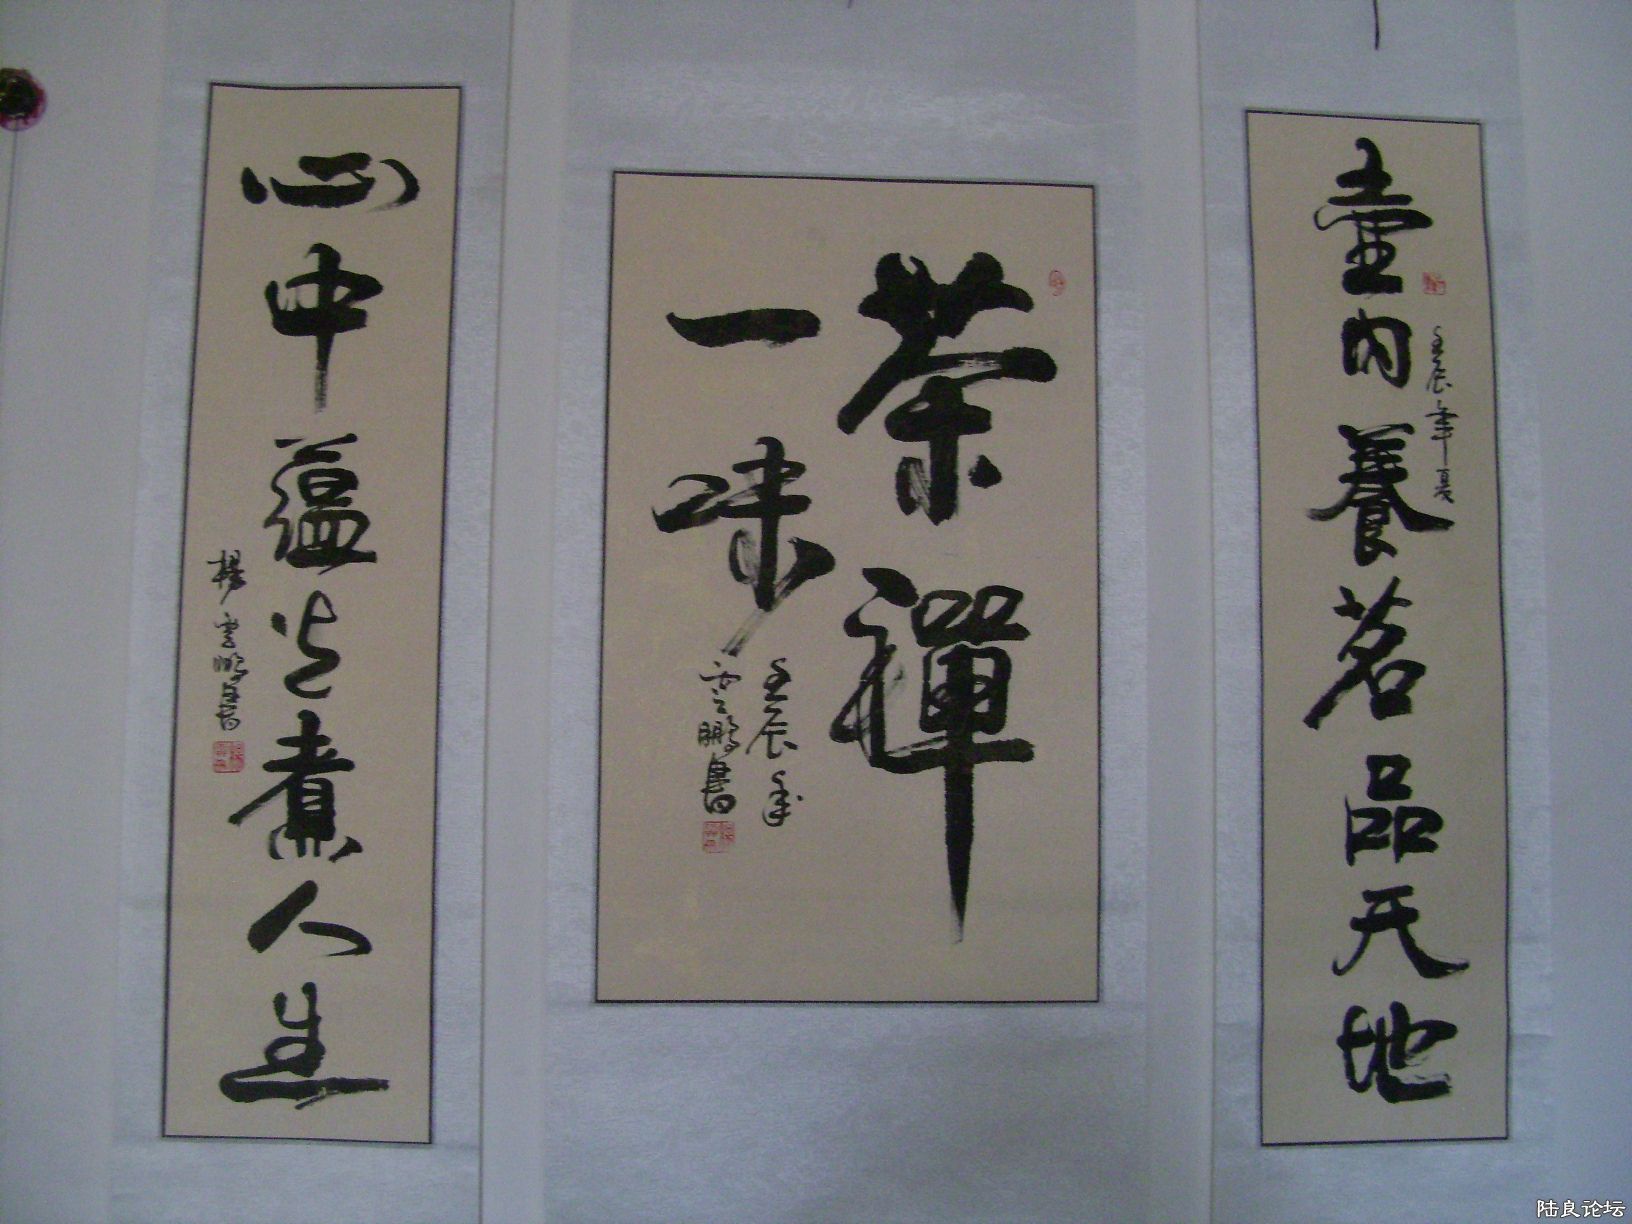 壺内養茗品天地
壬辰年夏
茶禪
一味
壬辰年
雲鵬書
心中蘊火煮人生
楊雲鵬書
陆良论坛